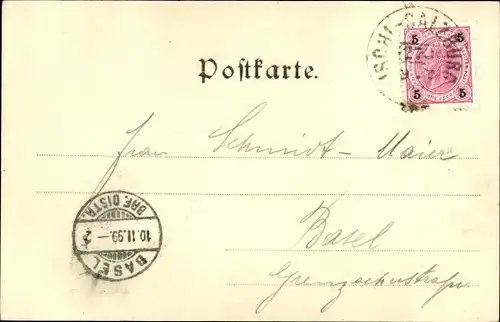 ISCHL-SALZBURG
5 5
5 5
Postkarte.
Frau Schmidt-Maier
BASEL
10.II.99.—2
BRF. DISTR.
Basel
Grenzacherstraße.